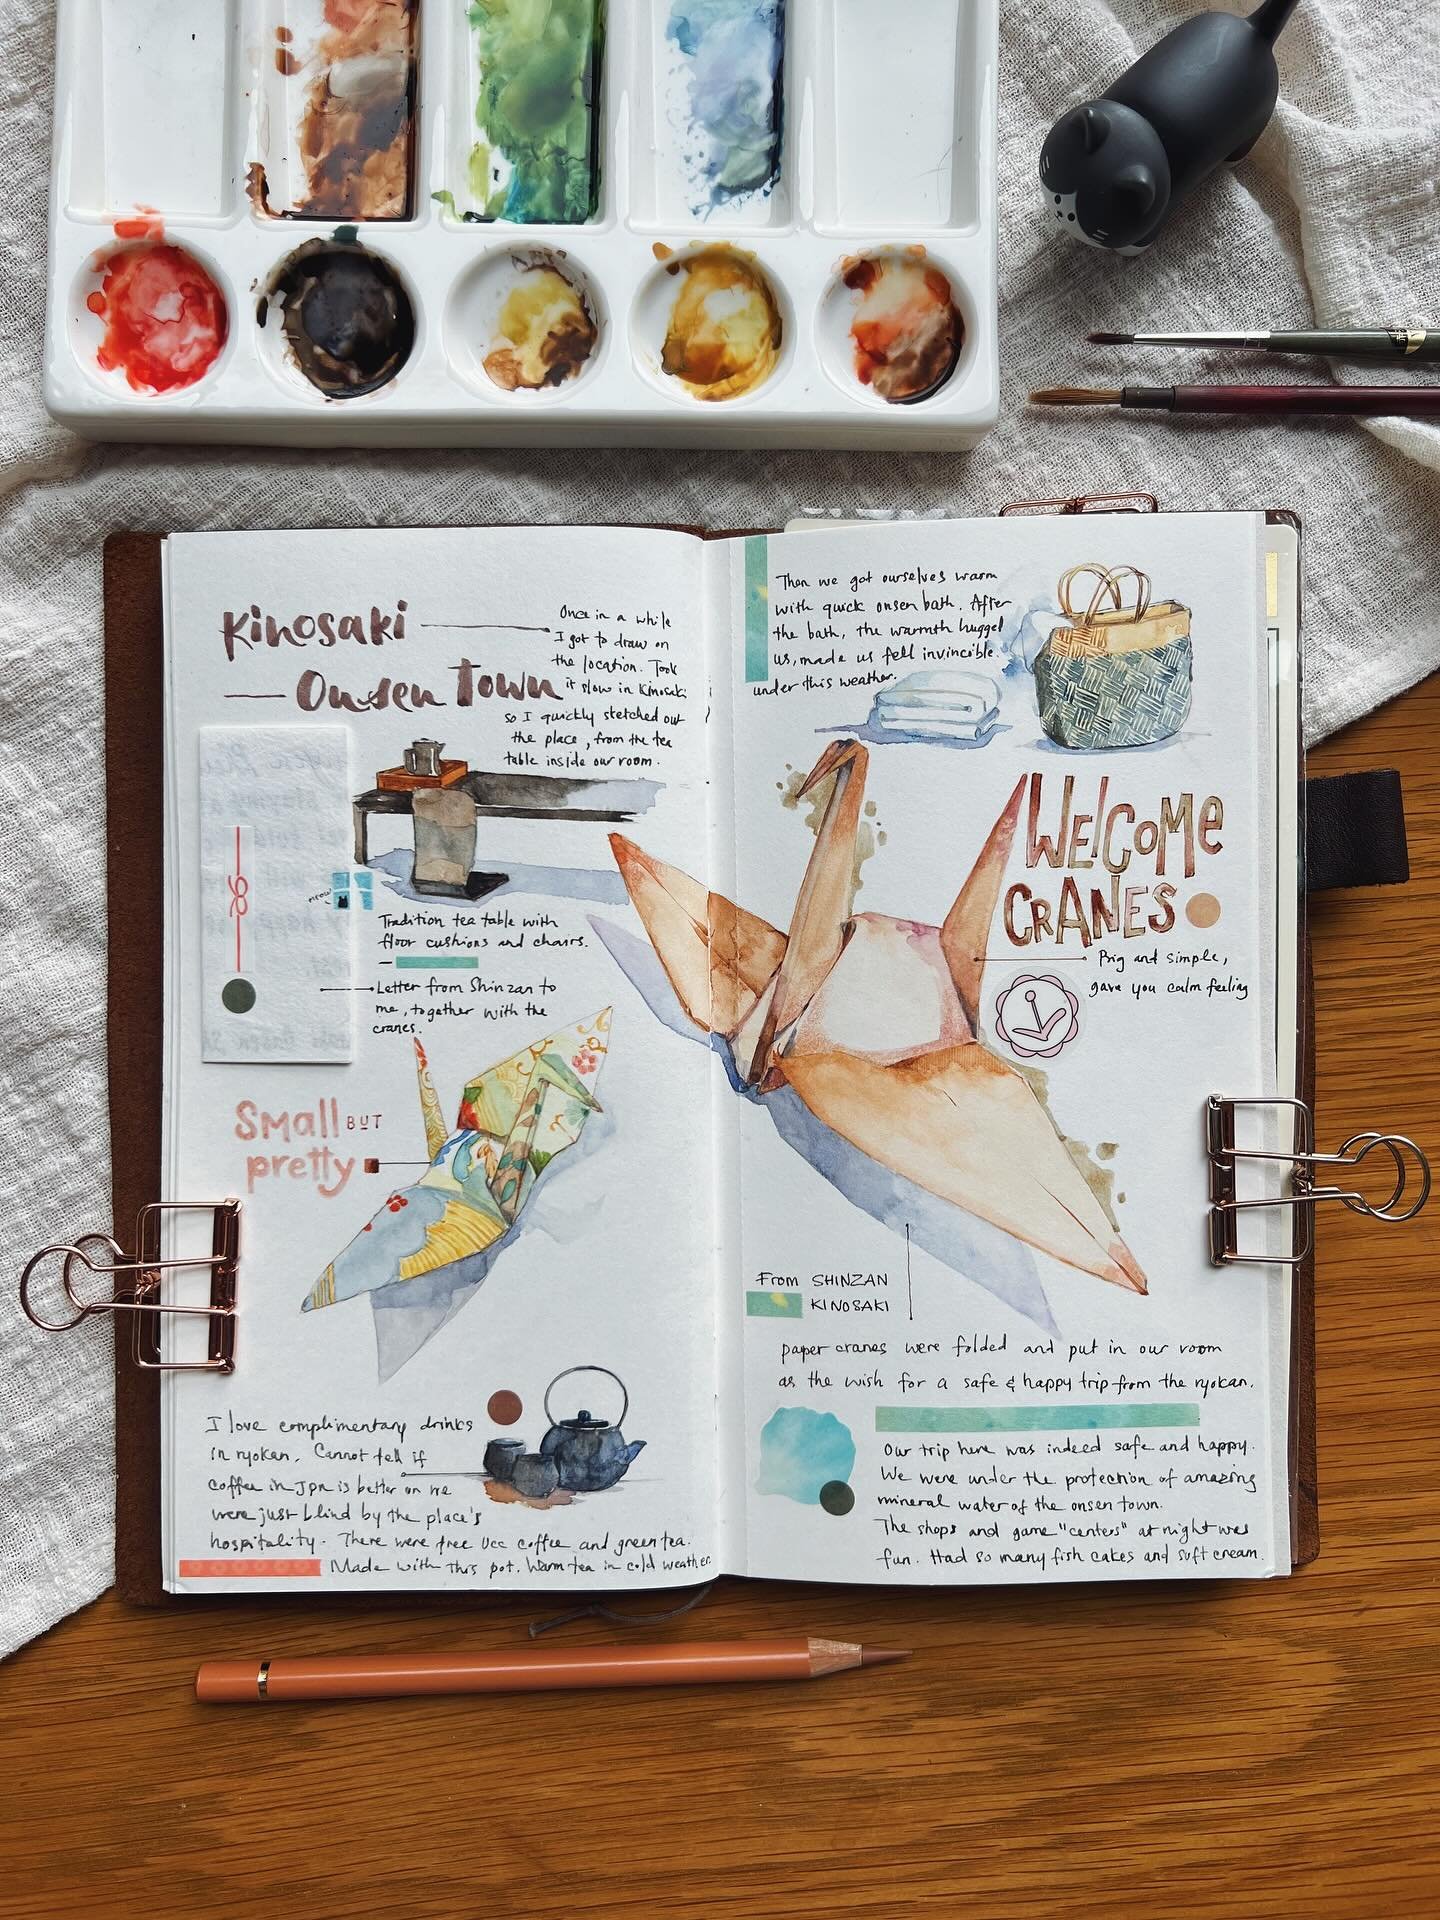 Kinosaki
Onsen Town
Once in a while
I got to draw on
the location. Took
it slow in Kinosaki
so I quickly sketched out
the place, from the tea
table inside our room.
meow
Tradition tea table with
floor cushions and chairs.
Letter from Shinzan to
me, together with the
cranes.
Small BUT
pretty
I love complimentary drinks
in ryokan. Cannot tell if
coffee in Jpn is better or we
were just blind by the place's
hospitality. There were free UCC coffee and green tea.
Made with this pot. Warm tea in cold weather.
Then we got ourselves warm
with quick onsen bath. After
the bath, the warmth hugged
us, made us fell invincible.
under this weather.
WELCOME
CRANES
Big and simple,
gave you calm feeling
From SHINZAN
KINOSAKI
paper cranes were folded and put in our room
as the wish for a safe & happy trip from the ryokan.
Our trip here was indeed safe and happy.
We were under the protection of amazing
mineral water of the onsen town.
The shops and game "centers" at night was
fun. Had so many fish cakes and soft cream.